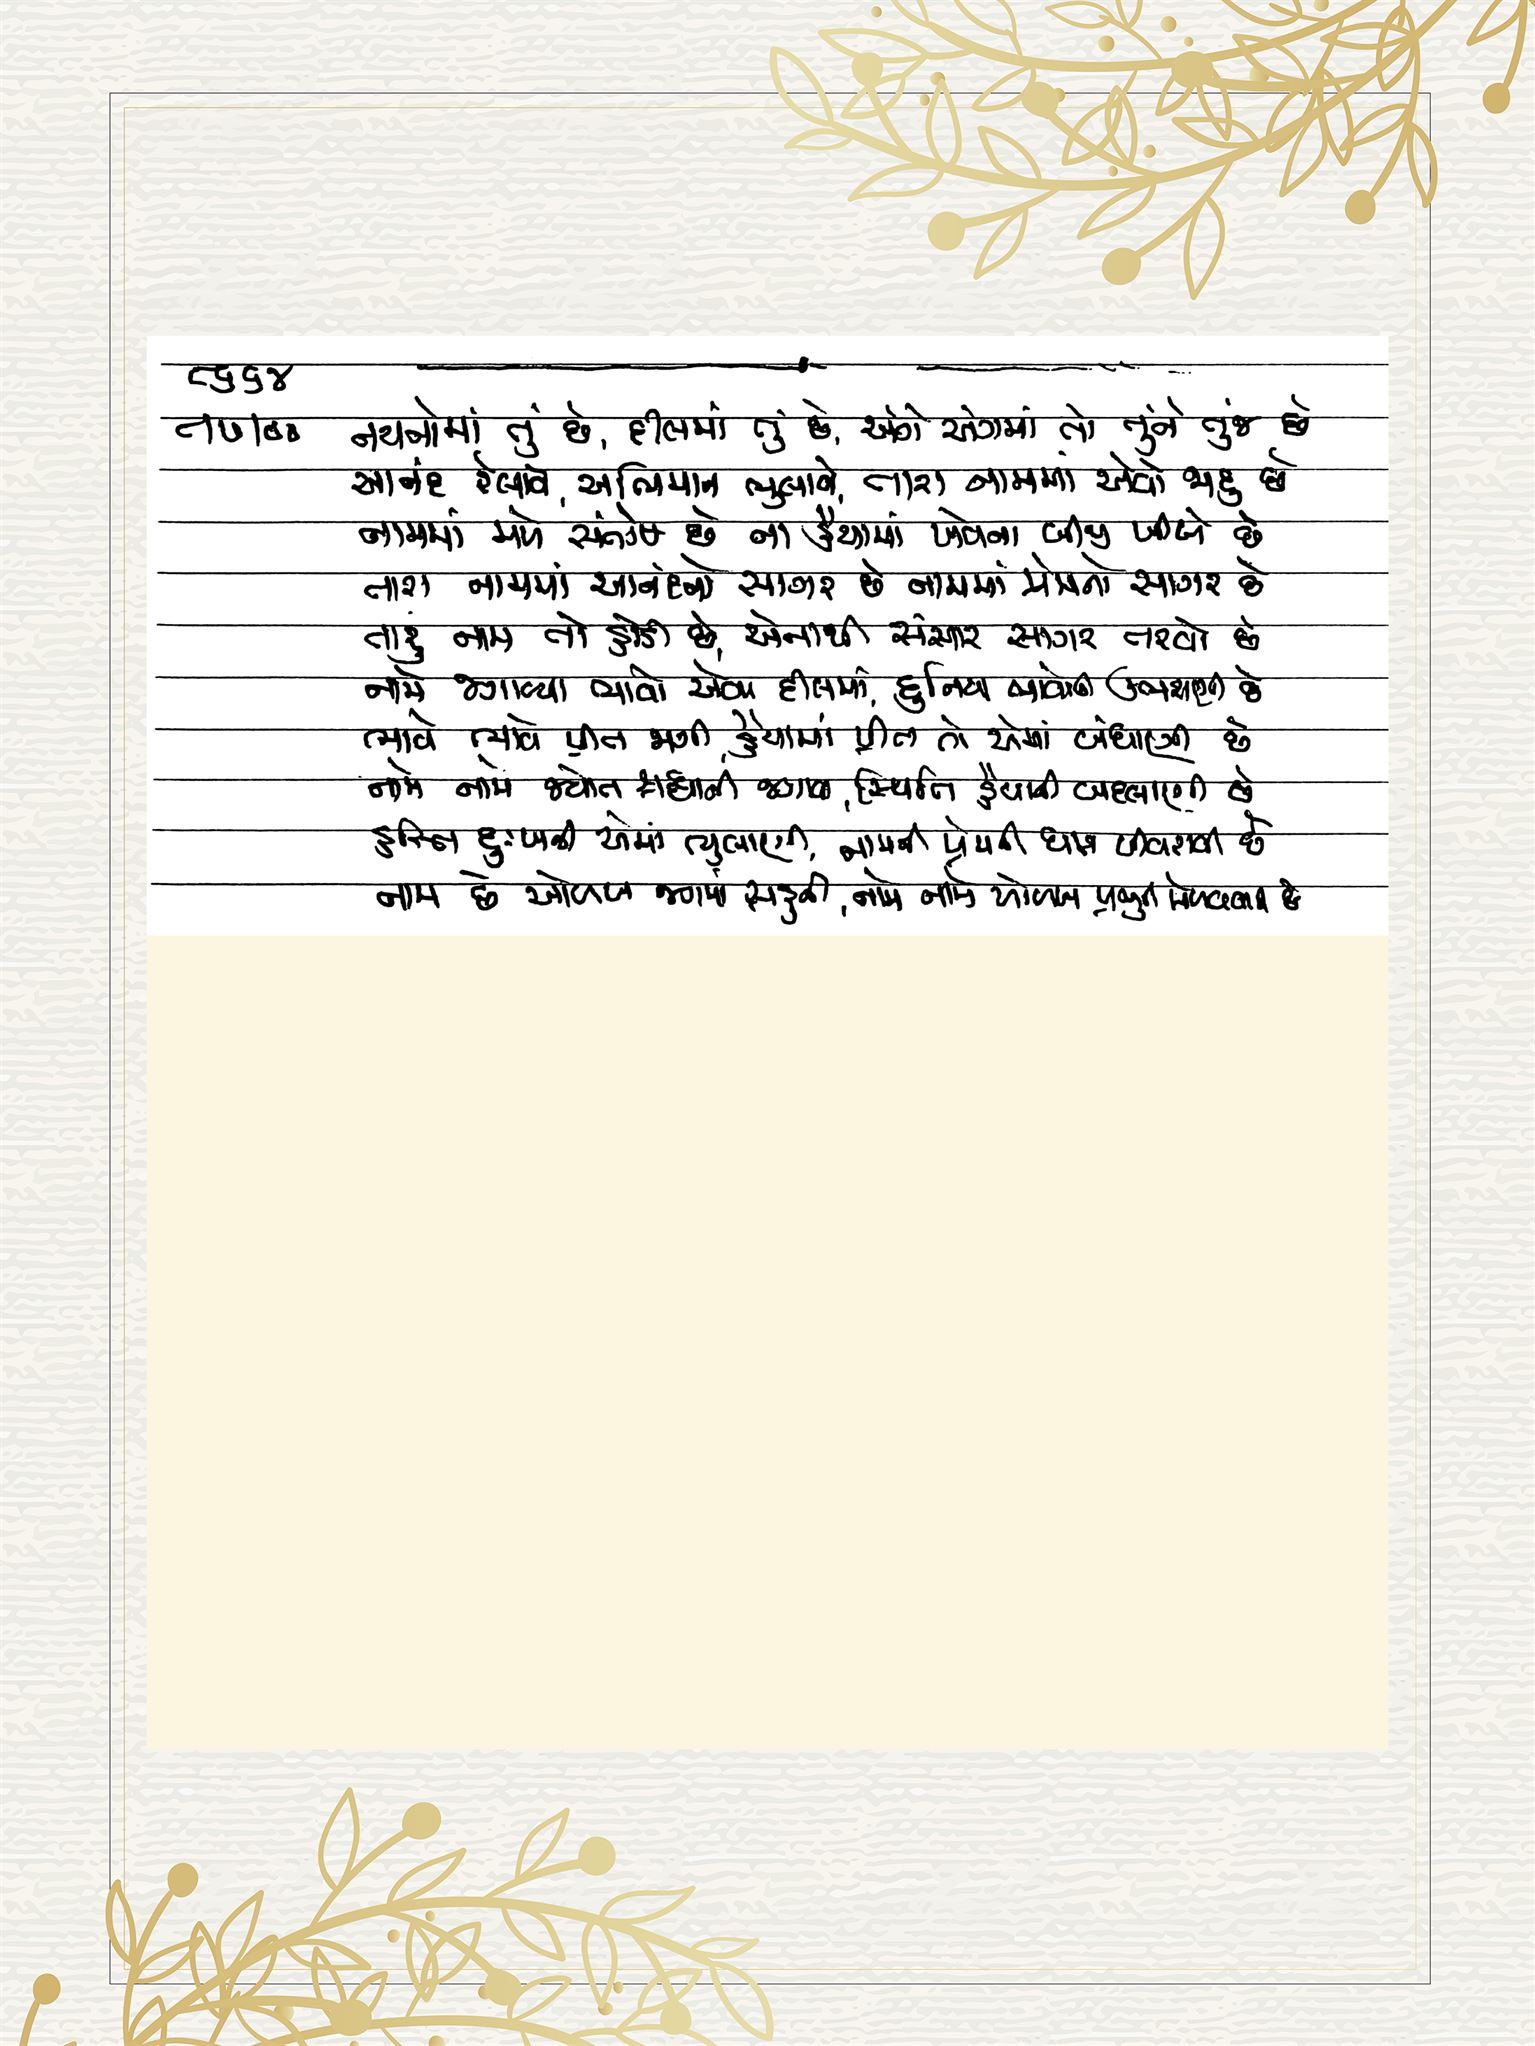 ૮૬૬૪
નયનોમાં તું છે, દીલમાં તું છે, અંગે અંગમાં તો તુંને તુંજ છે
આનંદ રેલાવે, અભિમાન ભુલાવે, તારા નામમાં એવો જાદુ છે
નામમાં મળે સંતોષ છે ના હૈયામાં બીજી છે
તારા નામમાં આનંદનો સાગર છે નામમાં પ્રેમનો સાગર છે
તારું નામ તો હોડી છે, એનાથી સંસાર સાગર તરવો છે
નામે જગાવ્યા ભાવો એવા દીલમાં, દુનિયા ભાવોની ઉભરાણી છે
ભાવે ભાવે પ્રીત જાગી, હૈયામાં પ્રીત તો એમાં બંધાણી છે
નામે નામે જ્યોત શ્રદ્ધાની જગાવી, સ્થિતિ હૈયાની બદલાણી છે
હસ્તિ દુઃખની એમાં ભુલાણી, નામની પ્રેમની પીવરાવી છે
નામ છે ઓળખ જગમાં સહુની, નામે નામે ઓળખ પ્રભુની મેળવવાની છે